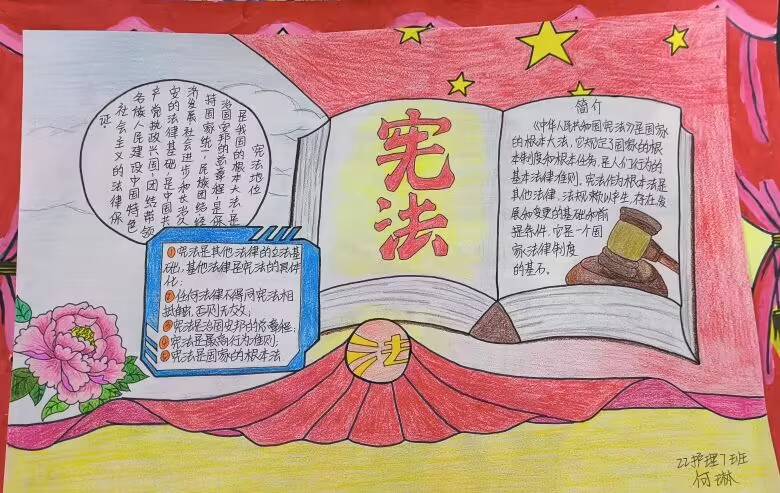 宪法地位
是我国的根本大法,是
治国安邦的总章程,是保
持国家统一,民族团结,经
济发展社会进步和长治久
安的法律基础,是中国共
产党执政兴国,团结带领
各族人民建设中国特色
社会主义的法律保
证.
①宪法是其他法律的立法基
础,其他法律是宪法的具体
化;
②任何法律不得同宪法相
抵触,否则无效;
③宪法是治国安邦的总章程;
④宪法是最高行为准则;
⑤宪法是国家的根本法
宪法
简介
《中华人民共和国宪法》是国家
的根本大法,它规定了国家的根
本制度和根本任务,是人们行为的
基本法律准则。宪法作为根本法是
其他法律、法规赖以产生、存在、发
展和变更的基础和前
提条件,它是一个国
家法律制度
的基石。
法
22护理7班
何琳